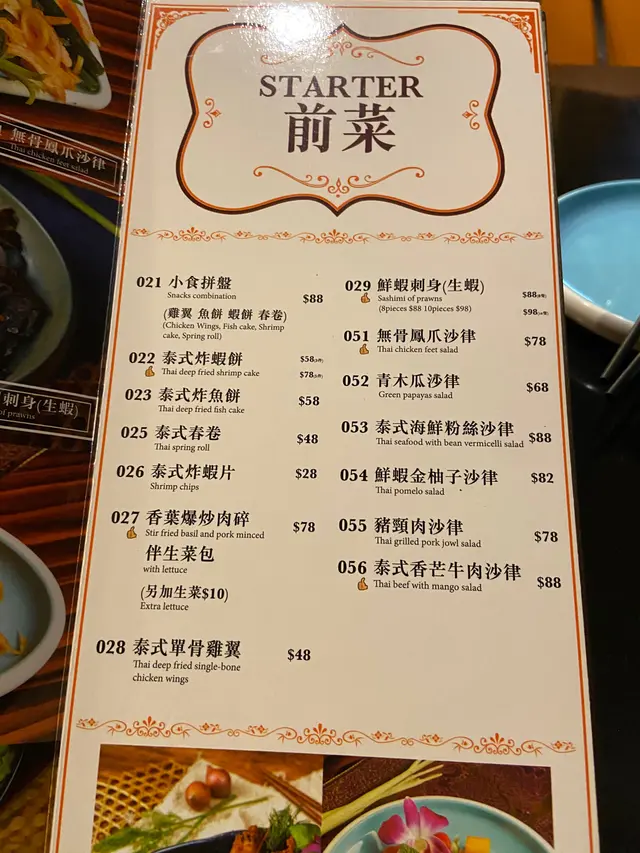 無骨鳳爪沙律
Thai chicken feet salad
刺身(生蝦)
of prawns
STARTER
前菜
021 小食拼盤
Snacks combination
$88
(雞翼 魚餅 蝦餅 春卷)
(Chicken Wings, Fish cake, Shrimp
cake, Spring roll)
022 泰式炸蝦餅
Thai deep fried shrimp cake
$58
$78
023 泰式炸魚餅
Thai deep fried fish cake
$58
025 泰式春卷
Thai spring roll
$48
026 泰式炸蝦片
Shrimp chips
$28
027 香葉爆炒肉碎
Stir fried basil and pork minced
$78
伴生菜包
with lettuce
(另加生菜$10)
Extra lettuce
028 泰式單骨雞翼
Thai deep fried single-bone
chicken wings
$48
029 鮮蝦刺身(生蝦)
Sashimi of prawns
(8pieces $88 10pieces $98)
$88
$98
051 無骨鳳爪沙律
Thai chicken feet salad
$78
052 青木瓜沙律
Green papayas salad
$68
053 泰式海鮮粉絲沙律
Thai seafood with bean vermicelli salad
$88
054 鮮蝦金柚子沙律
Thai pomelo salad
$82
055 豬頸肉沙律
Thai grilled pork jowl salad
$78
056 泰式香芒牛肉沙律
Thai beef with mango salad
$88